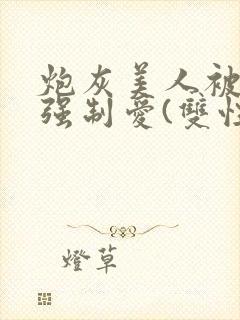 炮灰美人被
强制愛(雙性
燈草